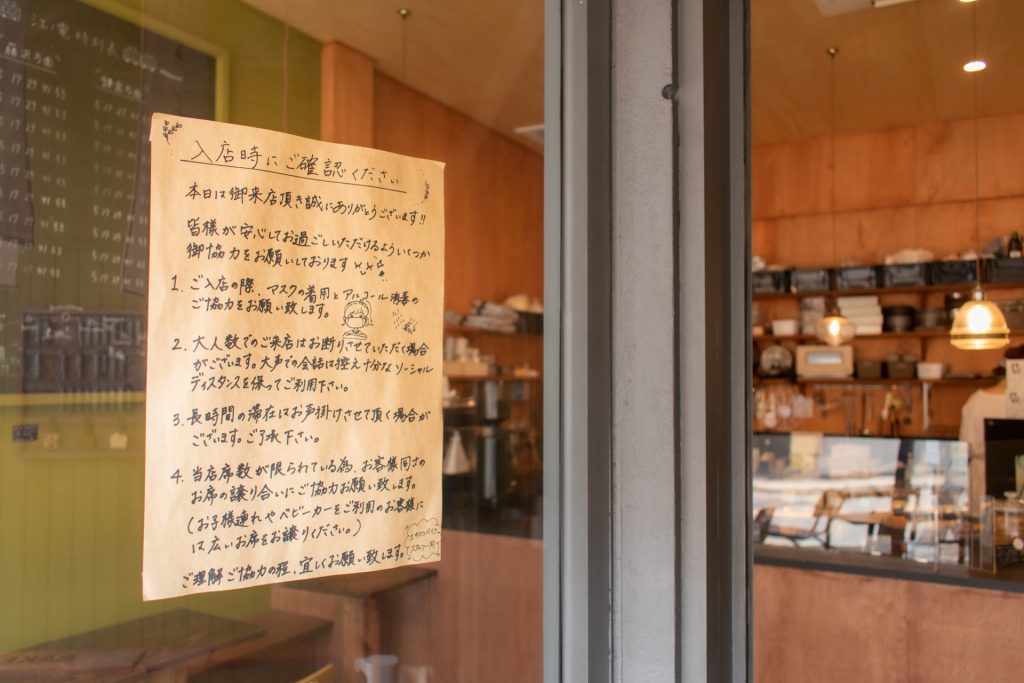 江ノ電時刻表
藤沢方面
鎌倉方面
入店時にご確認ください
本日は御来店頂き誠にありがとうございます!!
皆様が安心してお過ごしいただけるよういくつか
御協力をお願いしております
1. ご入店の際、マスクの着用とアルコール消毒の
ご協力をお願い致します。
2. 大人数でのご来店はお断りさせていただく場合
がございます。大声での会話は控え十分なソーシャル
ディスタンスを保ってご利用下さい。
3. 長時間の滞在はお声掛けさせて頂く場合が
ございます。ご了承下さい。
4. 当店席数が限られている為、お客様同士の
お席の譲り合いにご協力お願い致します。
(お子様連れやベビーカーをご利用のお客様に
は広いお席をお譲りください。)
ご理解ご協力の程、宜しくお願い致します。
スタッフ一同